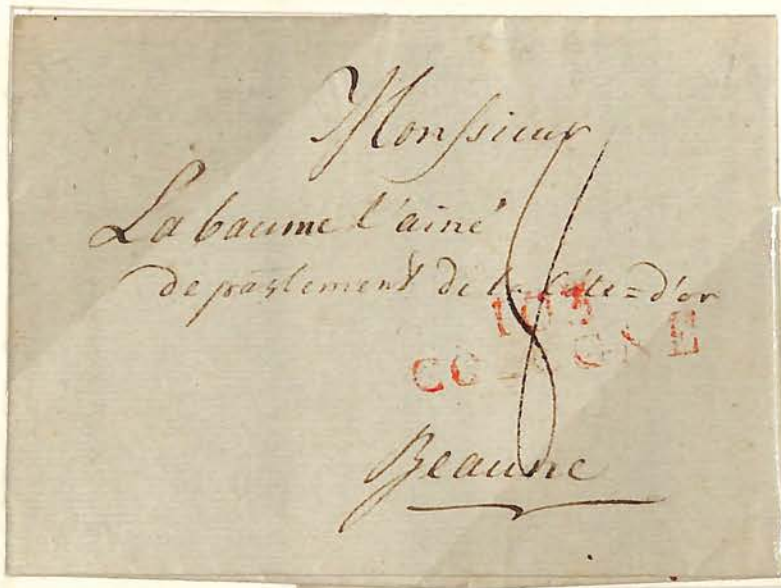 Monsieur
Labaume l'ainé
departement de la Côte=d'or
103
COLOGNE
8
Beaune